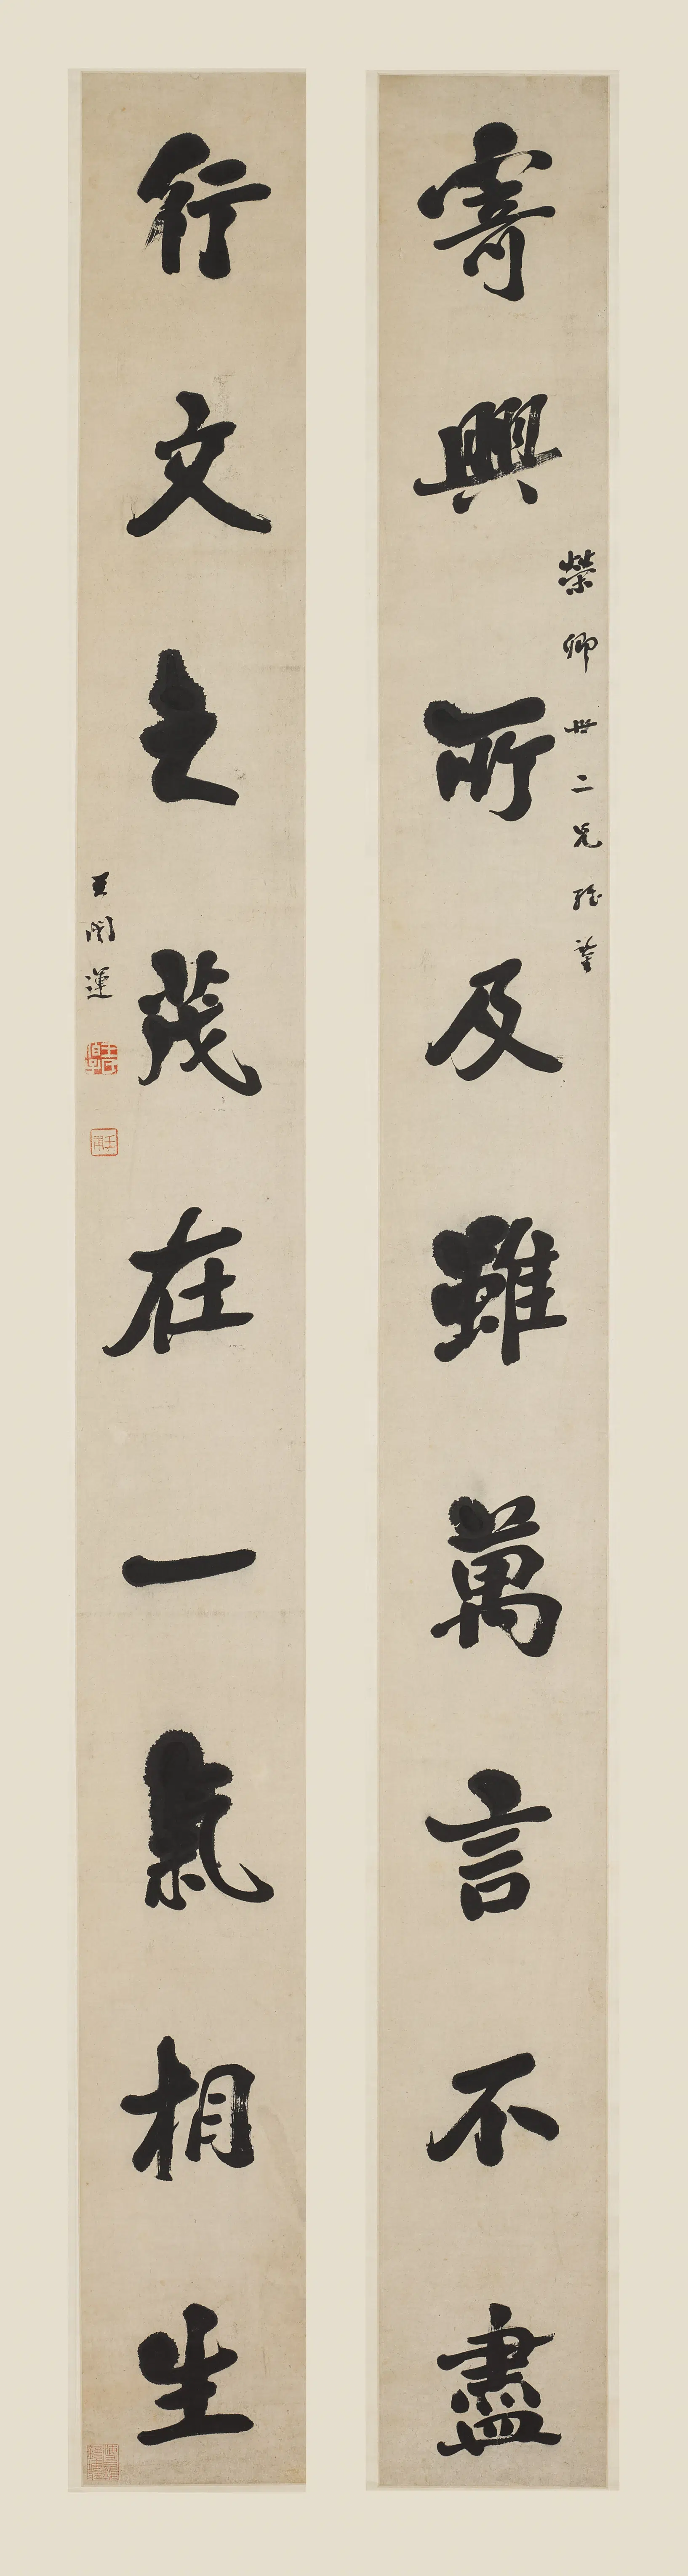 榮卿世二兄雅鑒
寄興所及雖萬言不盡
行文之茂在一氣相生
王闓運